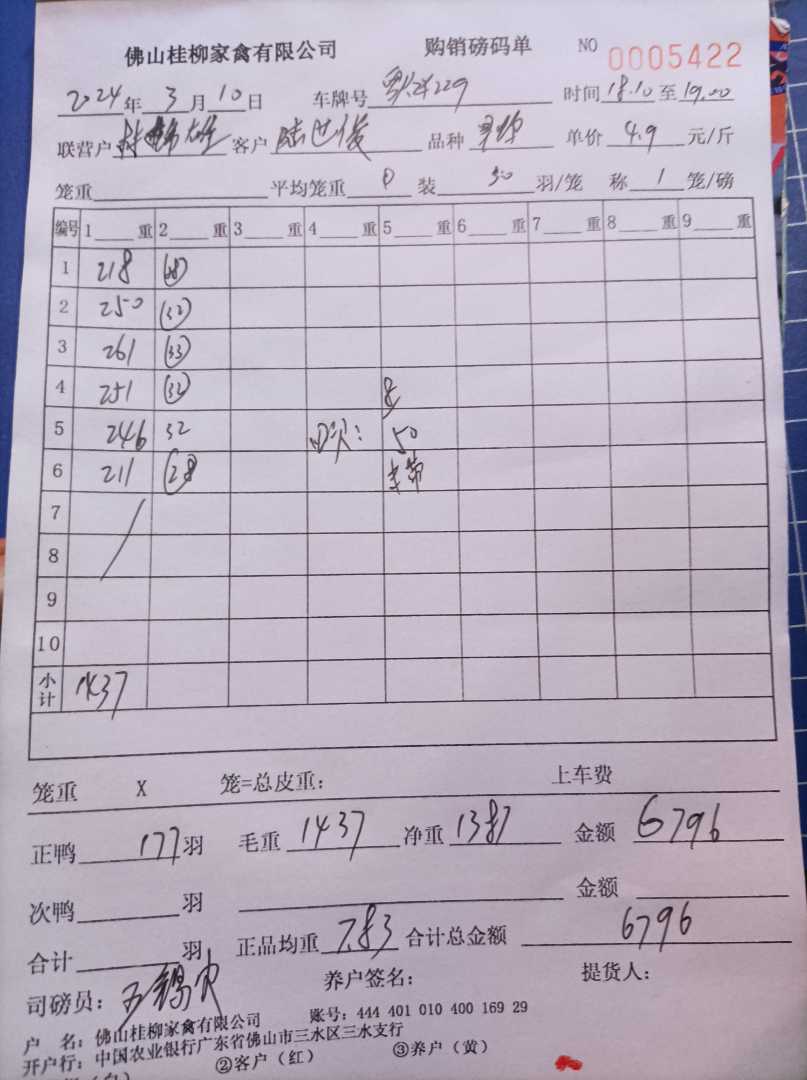 佛山桂柳家禽有限公司 购销磅码单 NO 0005422
2024年 3月 10日 车牌号 时间 18.10 至 19.00
联营户 客户 陆世俊 品种 单价 4.9 元/斤
笼重 平均笼重 0 装 30 羽/笼 称 1 笼/磅
编号 1 重 2 重 3 重 4 重 5 重 6 重 7 重 8 重 9 重
1 218
2 250 32
3 261 33
4 251 32 8
5 246 32 50
6 211 28
7
8
9
10
小计 1437
笼重 X 笼=总皮重: 上车费
正鸭 177 羽 毛重 1437 净重 1387 金额 6796
次鸭 羽 金额
合计 羽 正品均重 7.83 合计总金额 6796
司磅员: 养户签名: 提货人:
户 名: 佛山桂柳家禽有限公司 账号: 444 401 010 400 169 29
开户行: 中国农业银行广东省佛山市三水区三水支行
②客户(红) ③养户(黄)